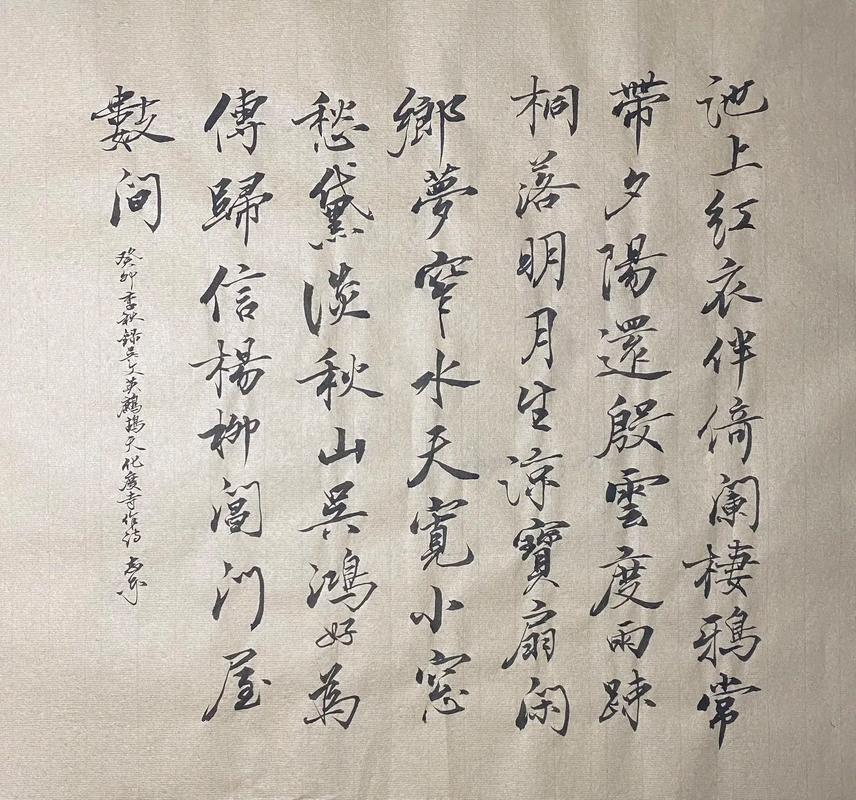 池上紅衣伴倚闌棲鴉常
帶夕陽還殷雲度雨疎
桐落明月生涼寶扇閑
鄉夢窄水天寬小窓
愁黛淡秋山吳鴻好為
傳歸信楊柳閶門屋
數間
癸卯季秋錄吳文英鷓鴣天化度寺作